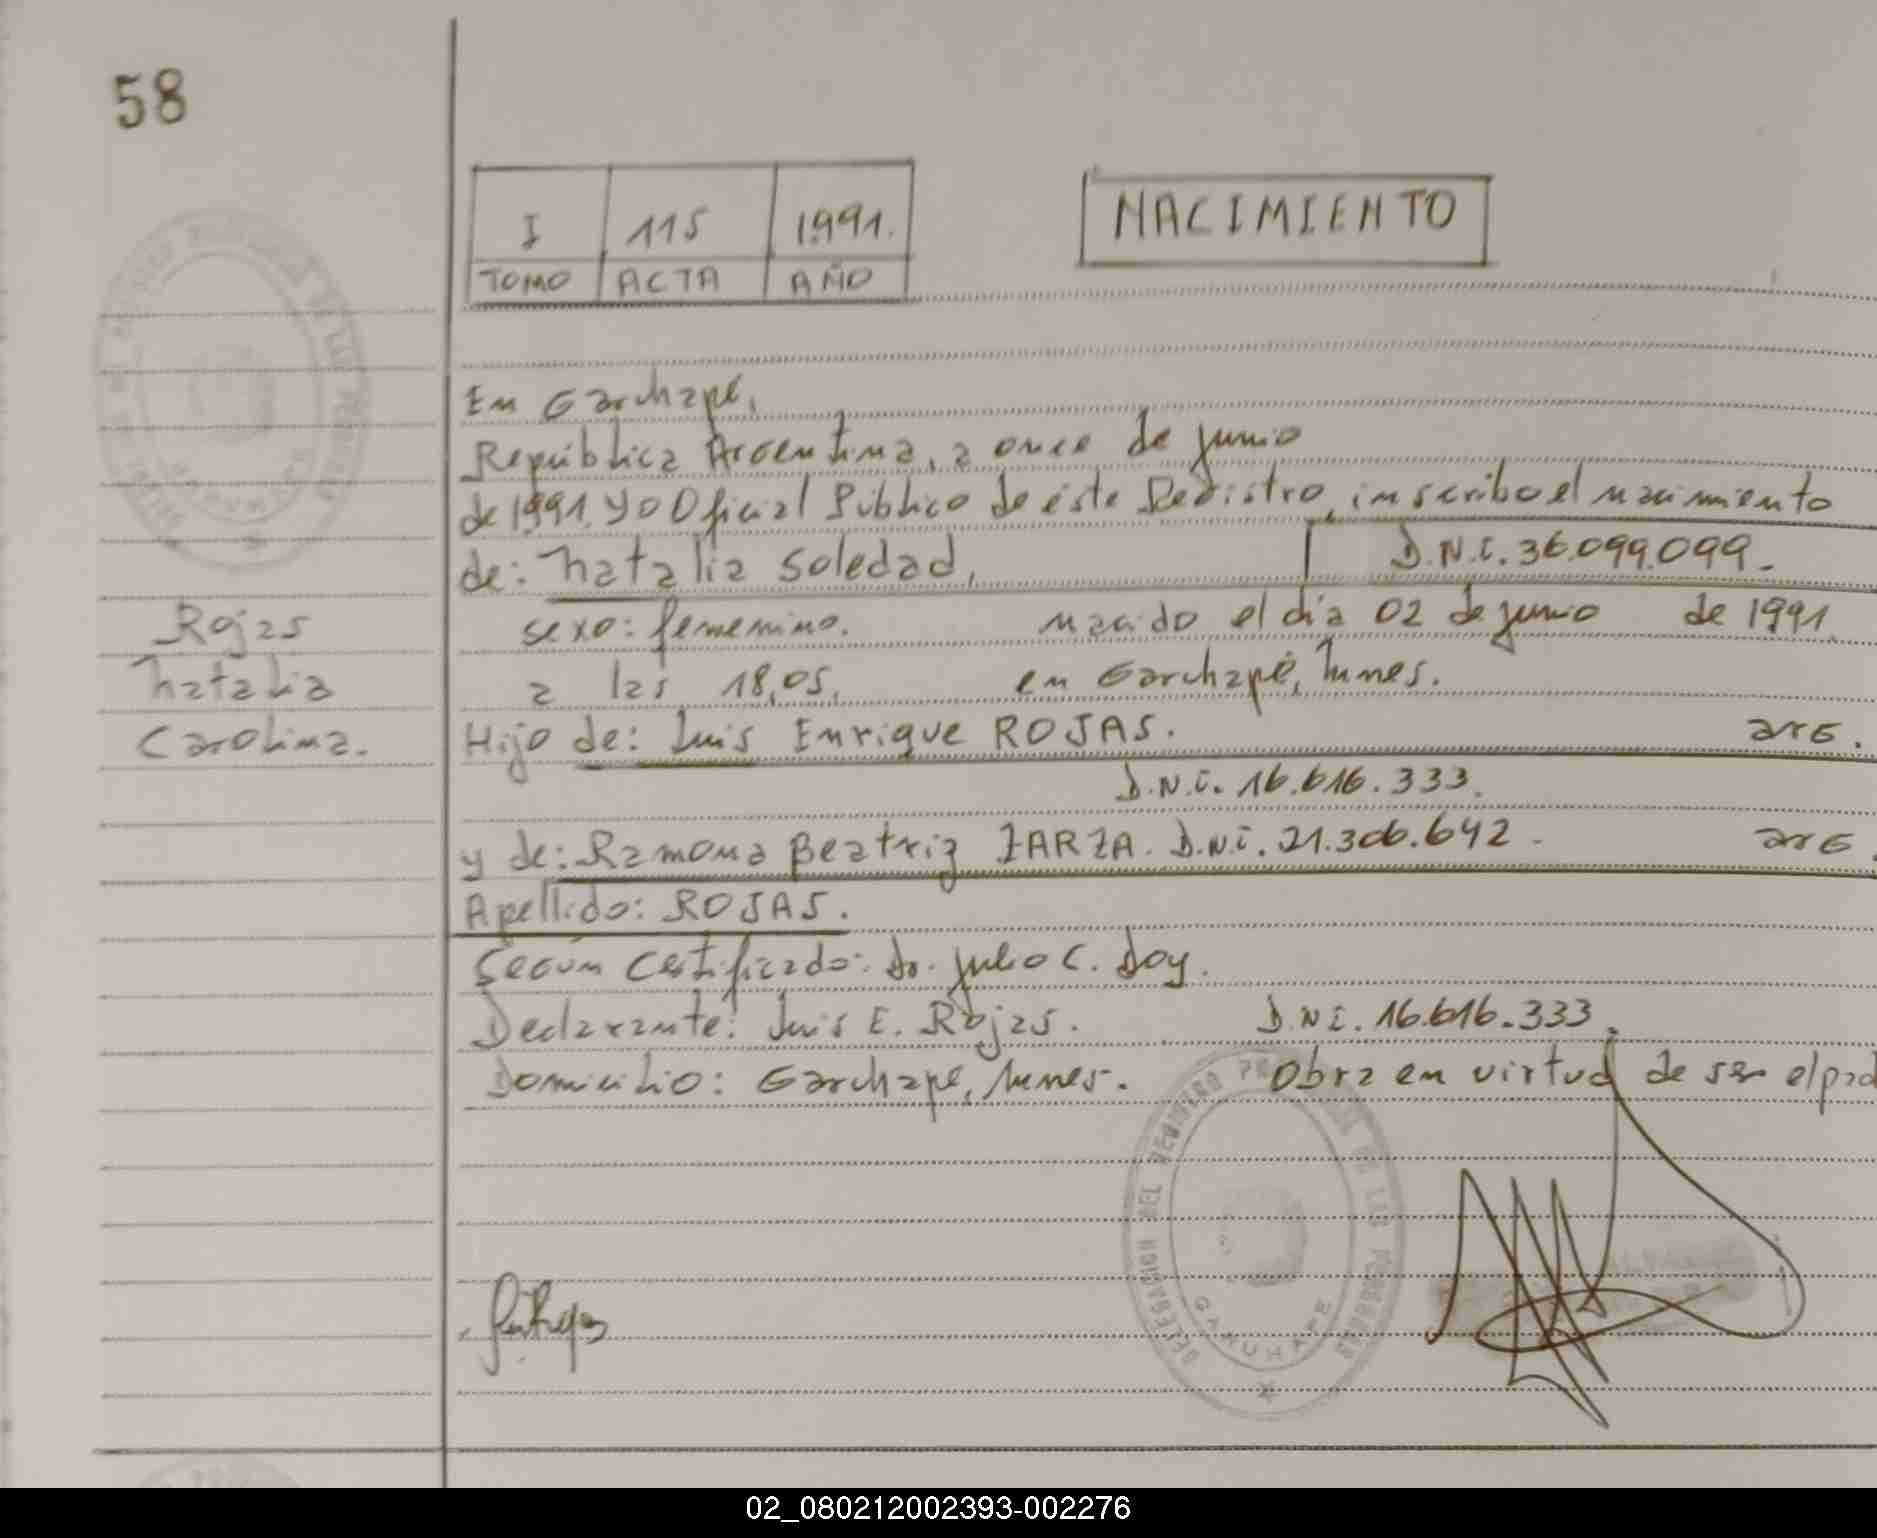 58
I 115 1991.
TOMO ACTA AÑO
NACIMIENTO
En Garuhapé,
República Argentina, a once de junio
de 1991. yo Oficial Público de éste Registro, inscribo el nacimiento
de: Natalia Soledad, D.N.I. 36.099.099.-
sexo: femenino. nacido el día 02 de junio de 1991.
a las 18,05. en Garuhapé, Mnes.
Rojas
Natalia
Carolina.
Hijo de: Luis Enrique ROJAS. arg.
D.N.I. 16.616.333.
y de: Ramona Beatriz ZARZA. D.N.I. 21.306.642 - arg.
Apellido: ROJAS.
Según Certificado: Dr. Julio C. Doy.
Declarante: Luis E. Rojas. D.N.I. 16.616.333.
Domicilio: Garuhapé, Mnes. Obra en virtud de ser el pad
DELEGACION DEL REGISTRO PROVINCIAL DE LAS PERSONAS
GARUHAPE
02_080212002393-002276